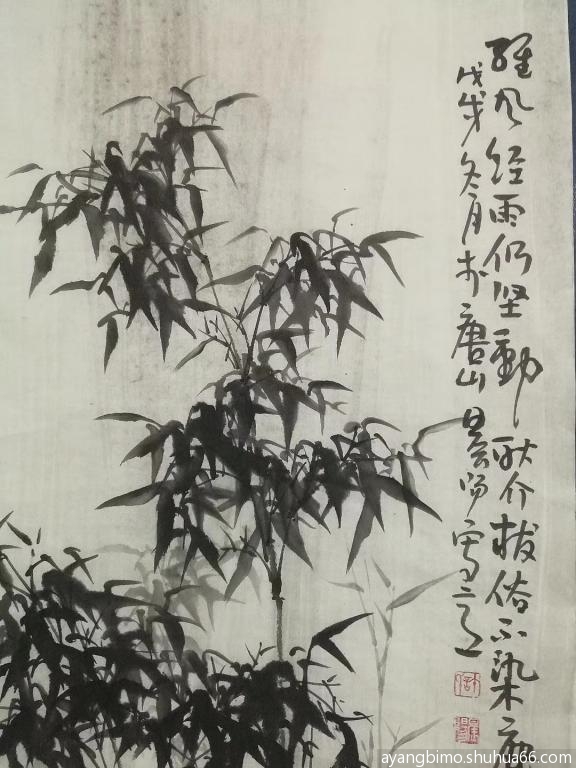 风经雨仍坚勁耿介拔俗不染
戊戌冬月於唐山景阳写
ayangbimo.shuhua66.com